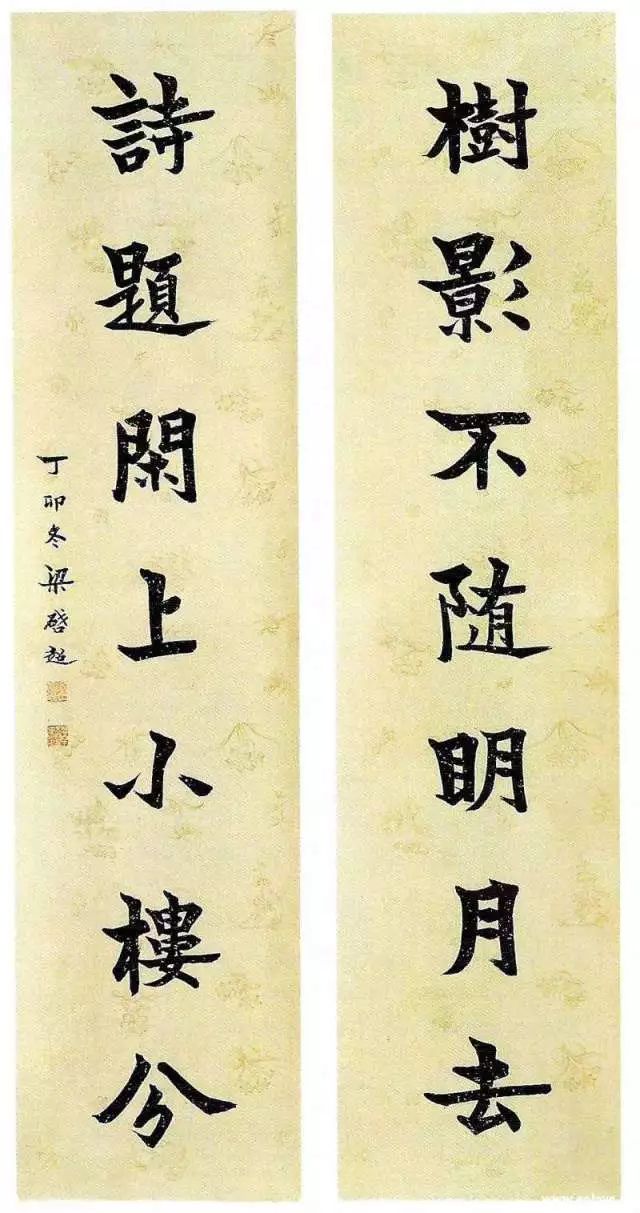 樹影不随明月去
詩題閑上小樓分
丁卯冬梁啓超